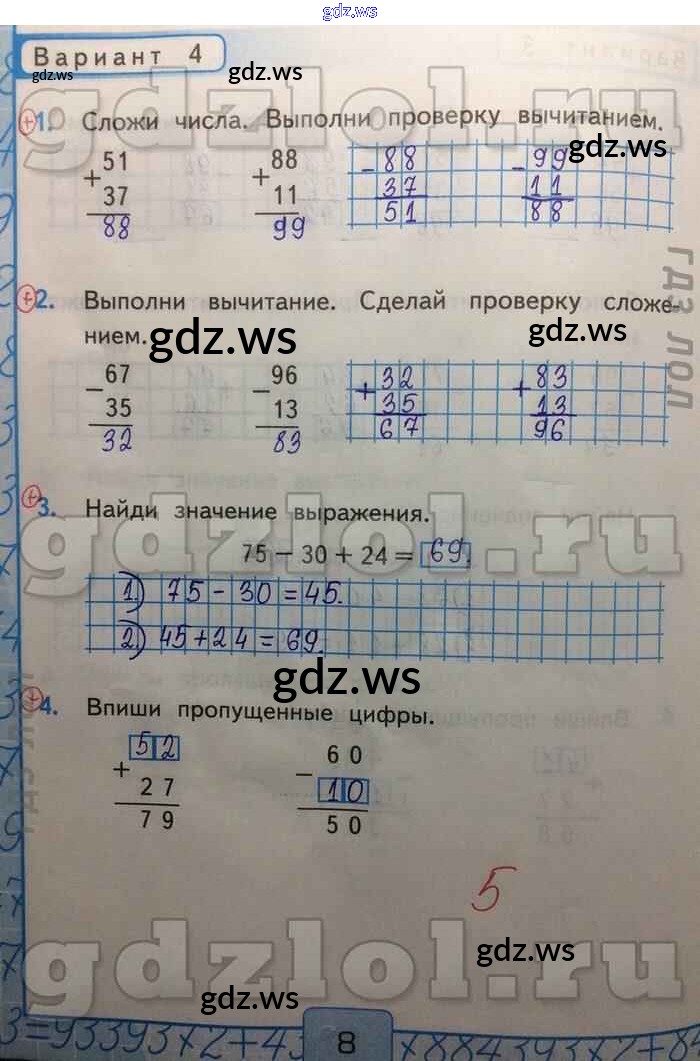 gdz.ws
Вариант 4
gdz.ws
gdz.ws
gdzlol.ru
+1. Сложи числа. Выполни проверку вычитанием.
gdz.ws
51 88 - 88 - 99
+ +
37 11 37 11
88 99 51 88
+2. Выполни вычитание. Сделай проверку сложе-
нием.
gdz.ws
gdz.ws
гдз лол
67 96 + 32 + 83
- -
35 13 35 13
32 83 67 96
+3. Найди значение выражения.
gdzlol.ru
75 - 30 + 24 = 69.
1) 75 - 30 = 45.
2) 45 + 24 = 69.
gdz.ws
+4. Впиши пропущенные цифры.
гдз лол
52 60
+ -
27 10
79 50
5
gdz.ws
gdzlol.ru
gdz.ws
gdz.ws
8